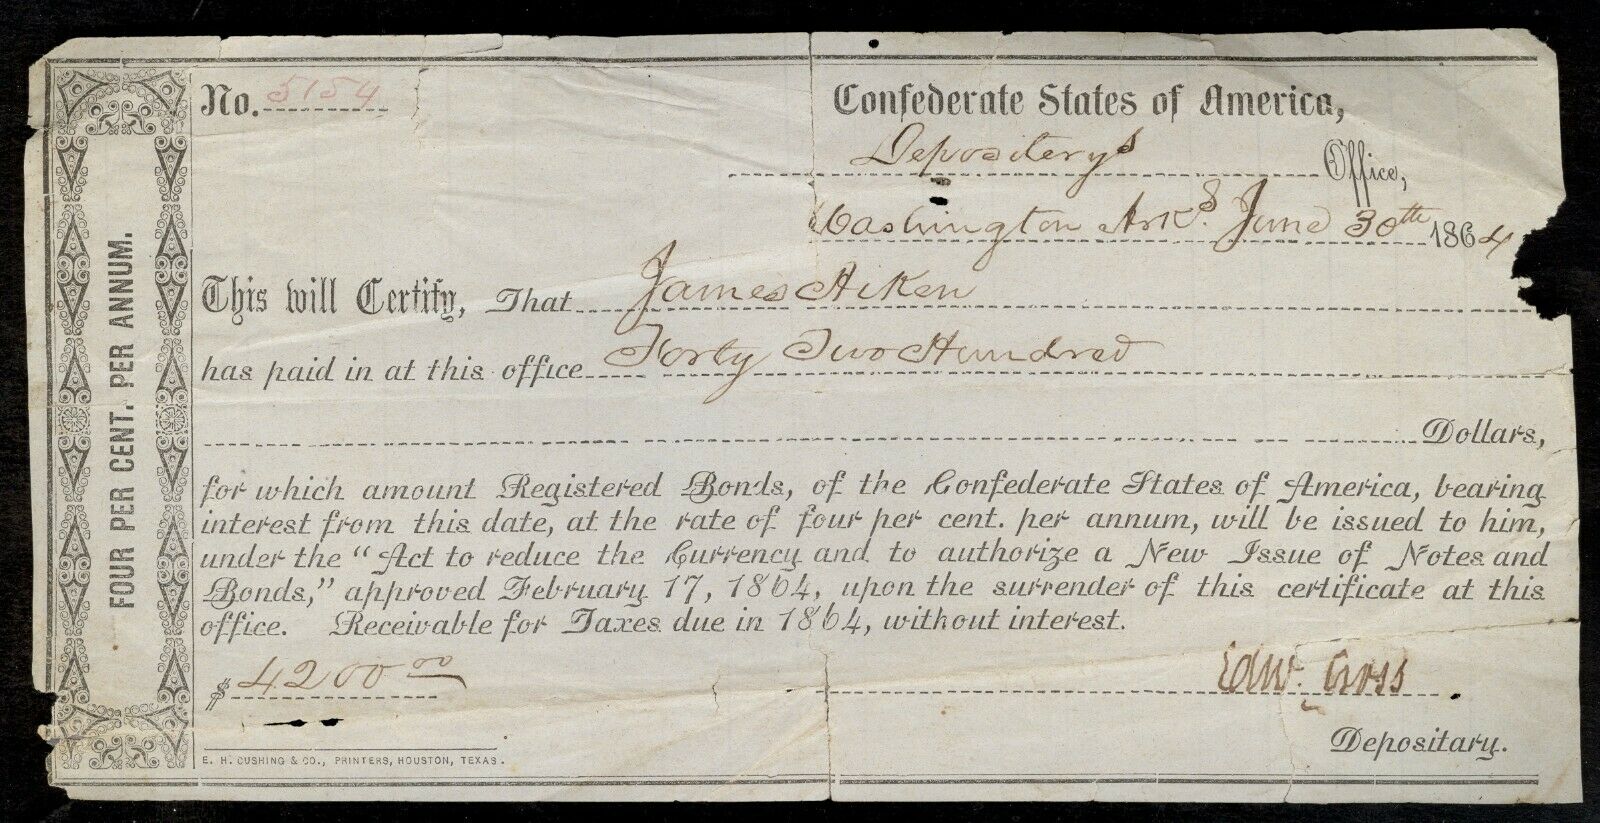 No. 5154
Confederate States of America,
Depositerys Office,
Washington Arks. June 30th 1864
This will Certify, That James Aiken
has paid in at this office Forty Two Hundred
Dollars,
for which amount Registered Bonds, of the Confederate States of America, bearing
interest from this date, at the rate of four per cent. per annum, will be issued to him,
under the "Act to reduce the Currency and to authorize a New Issue of Notes and
Bonds," approved February 17, 1864, upon the surrender of this certificate at this
office. Receivable for Taxes due in 1864, without interest.
$ 4200 00
Edw. Cross
Depositary.
E. H. CUSHING & CO., PRINTERS, HOUSTON, TEXAS.
FOUR PER CENT. PER ANNUM.